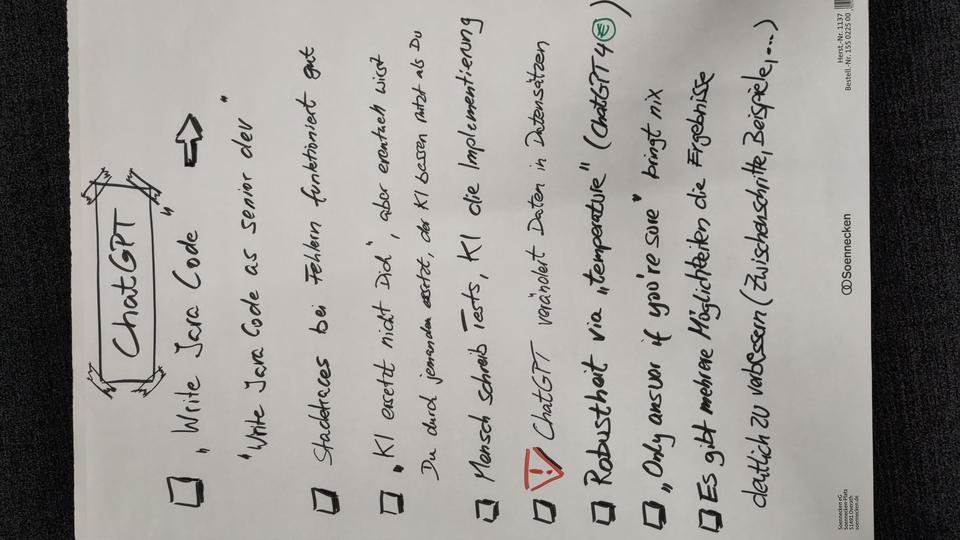 ChatGPT
☐ „Write Java Code" ⇨
"Write Java Code as senior dev"
☐ Stacktraces bei Fehlern funktioniert gut
☐ „KI ersetzt nicht Dich", aber eventuell wirst
Du durch jemanden ersetzt, der KI besser nutzt als Du
☐ Mensch schreib Tests, KI die Implementierung
☐ ⚠ ChatGPT verändert Daten in Datensätzen
☐ Robustheit via „temperature" (ChatGPT4 €)
☐ „Only answer if you're sure" bringt nix
☐ Es gibt mehrere Möglichkeiten die Ergebnisse
deutlich zu verbessern (Zwischenschritte, Beispiele, ...)
Soennecken eG
Soennecken-Platz
51491 Overath
soennecken.de
Soennecken
Herst.-Nr. 1137
Bestell.-Nr. 155 0225 00